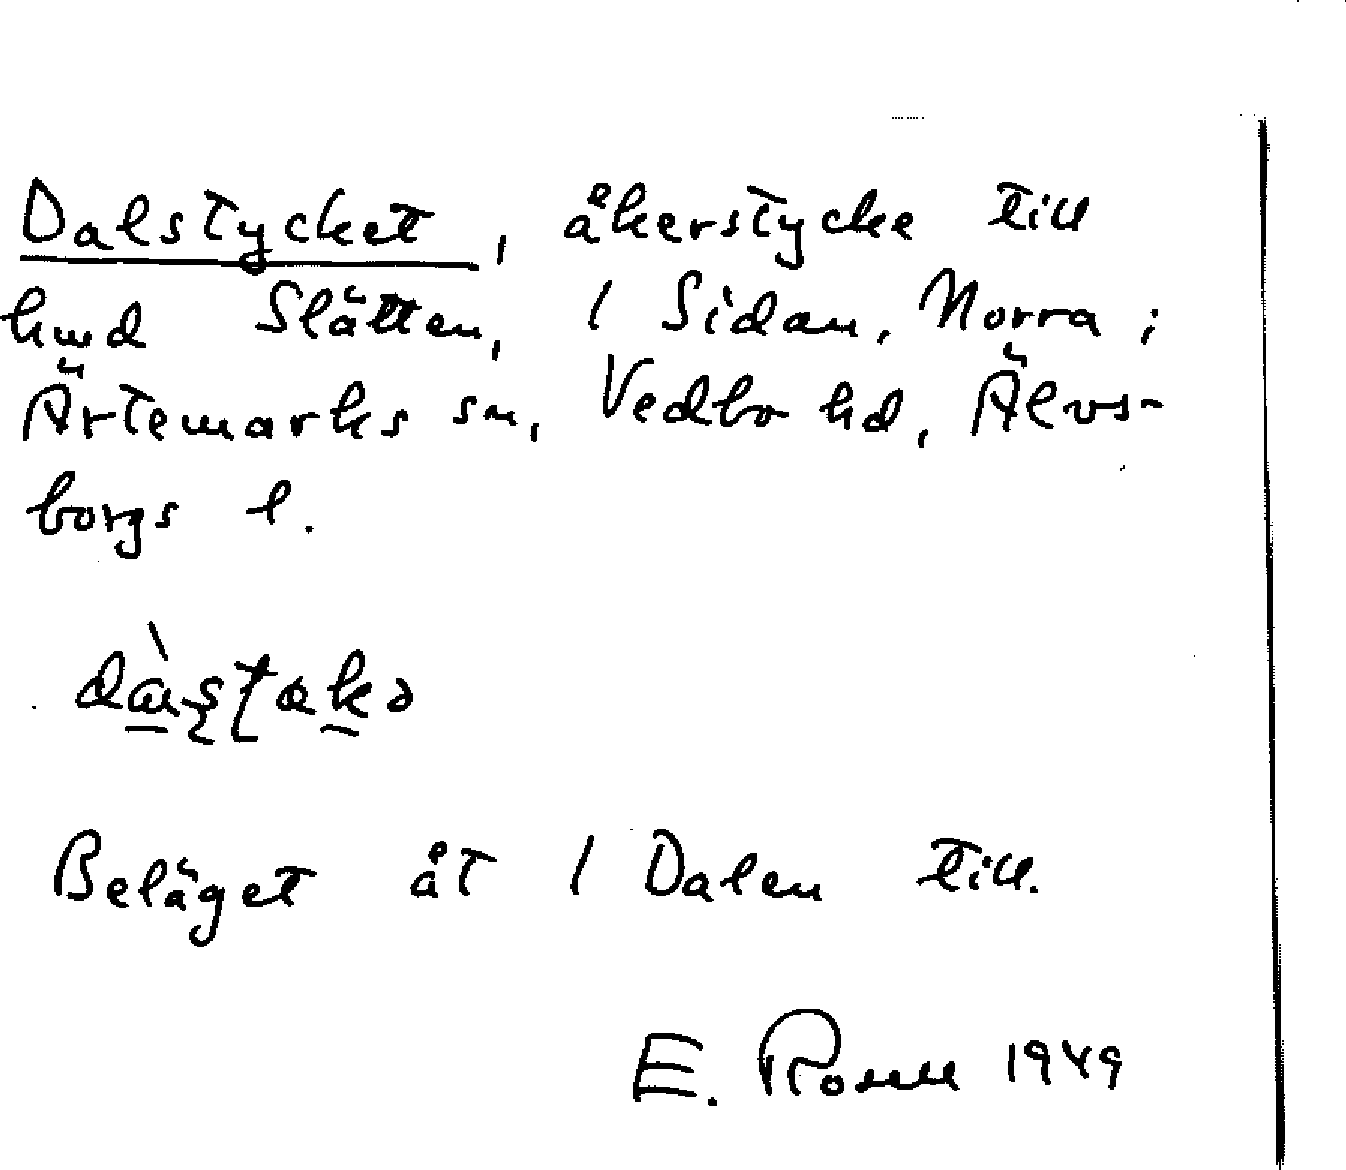 Dalstycket, åkerstycke till
hmd Slätten, 1 Sidan, Norra i
Ärtemarks sn, Vedbo hd, Älvs-
borgs l.
Beläget åt 1 Dalen till.
E. Rosell 1949